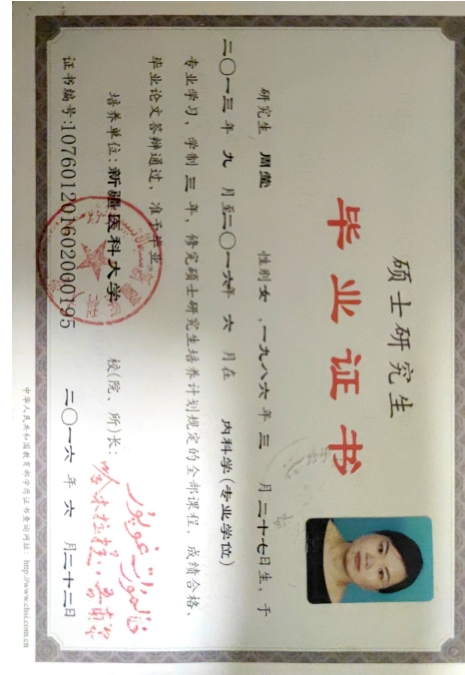 硕士研究生
毕业证书
研究生 周莹 性别 女 ,一九八六年 三 月二十七日生,于
二〇一三年 九 月至二〇一六年 六 月在 内科学(专业学位)
专业学习,学制 三 年,修完硕士研究生培养计划规定的全部课程,成绩合格,
毕业论文答辩通过,准予毕业。
培养单位:新疆医科大学 校(院、所)长:
证书编号:107601201602000195 二〇一六 年 六 月二十二日
中华人民共和国教育部学历证书查询网址:http://www.chsi.com.cn